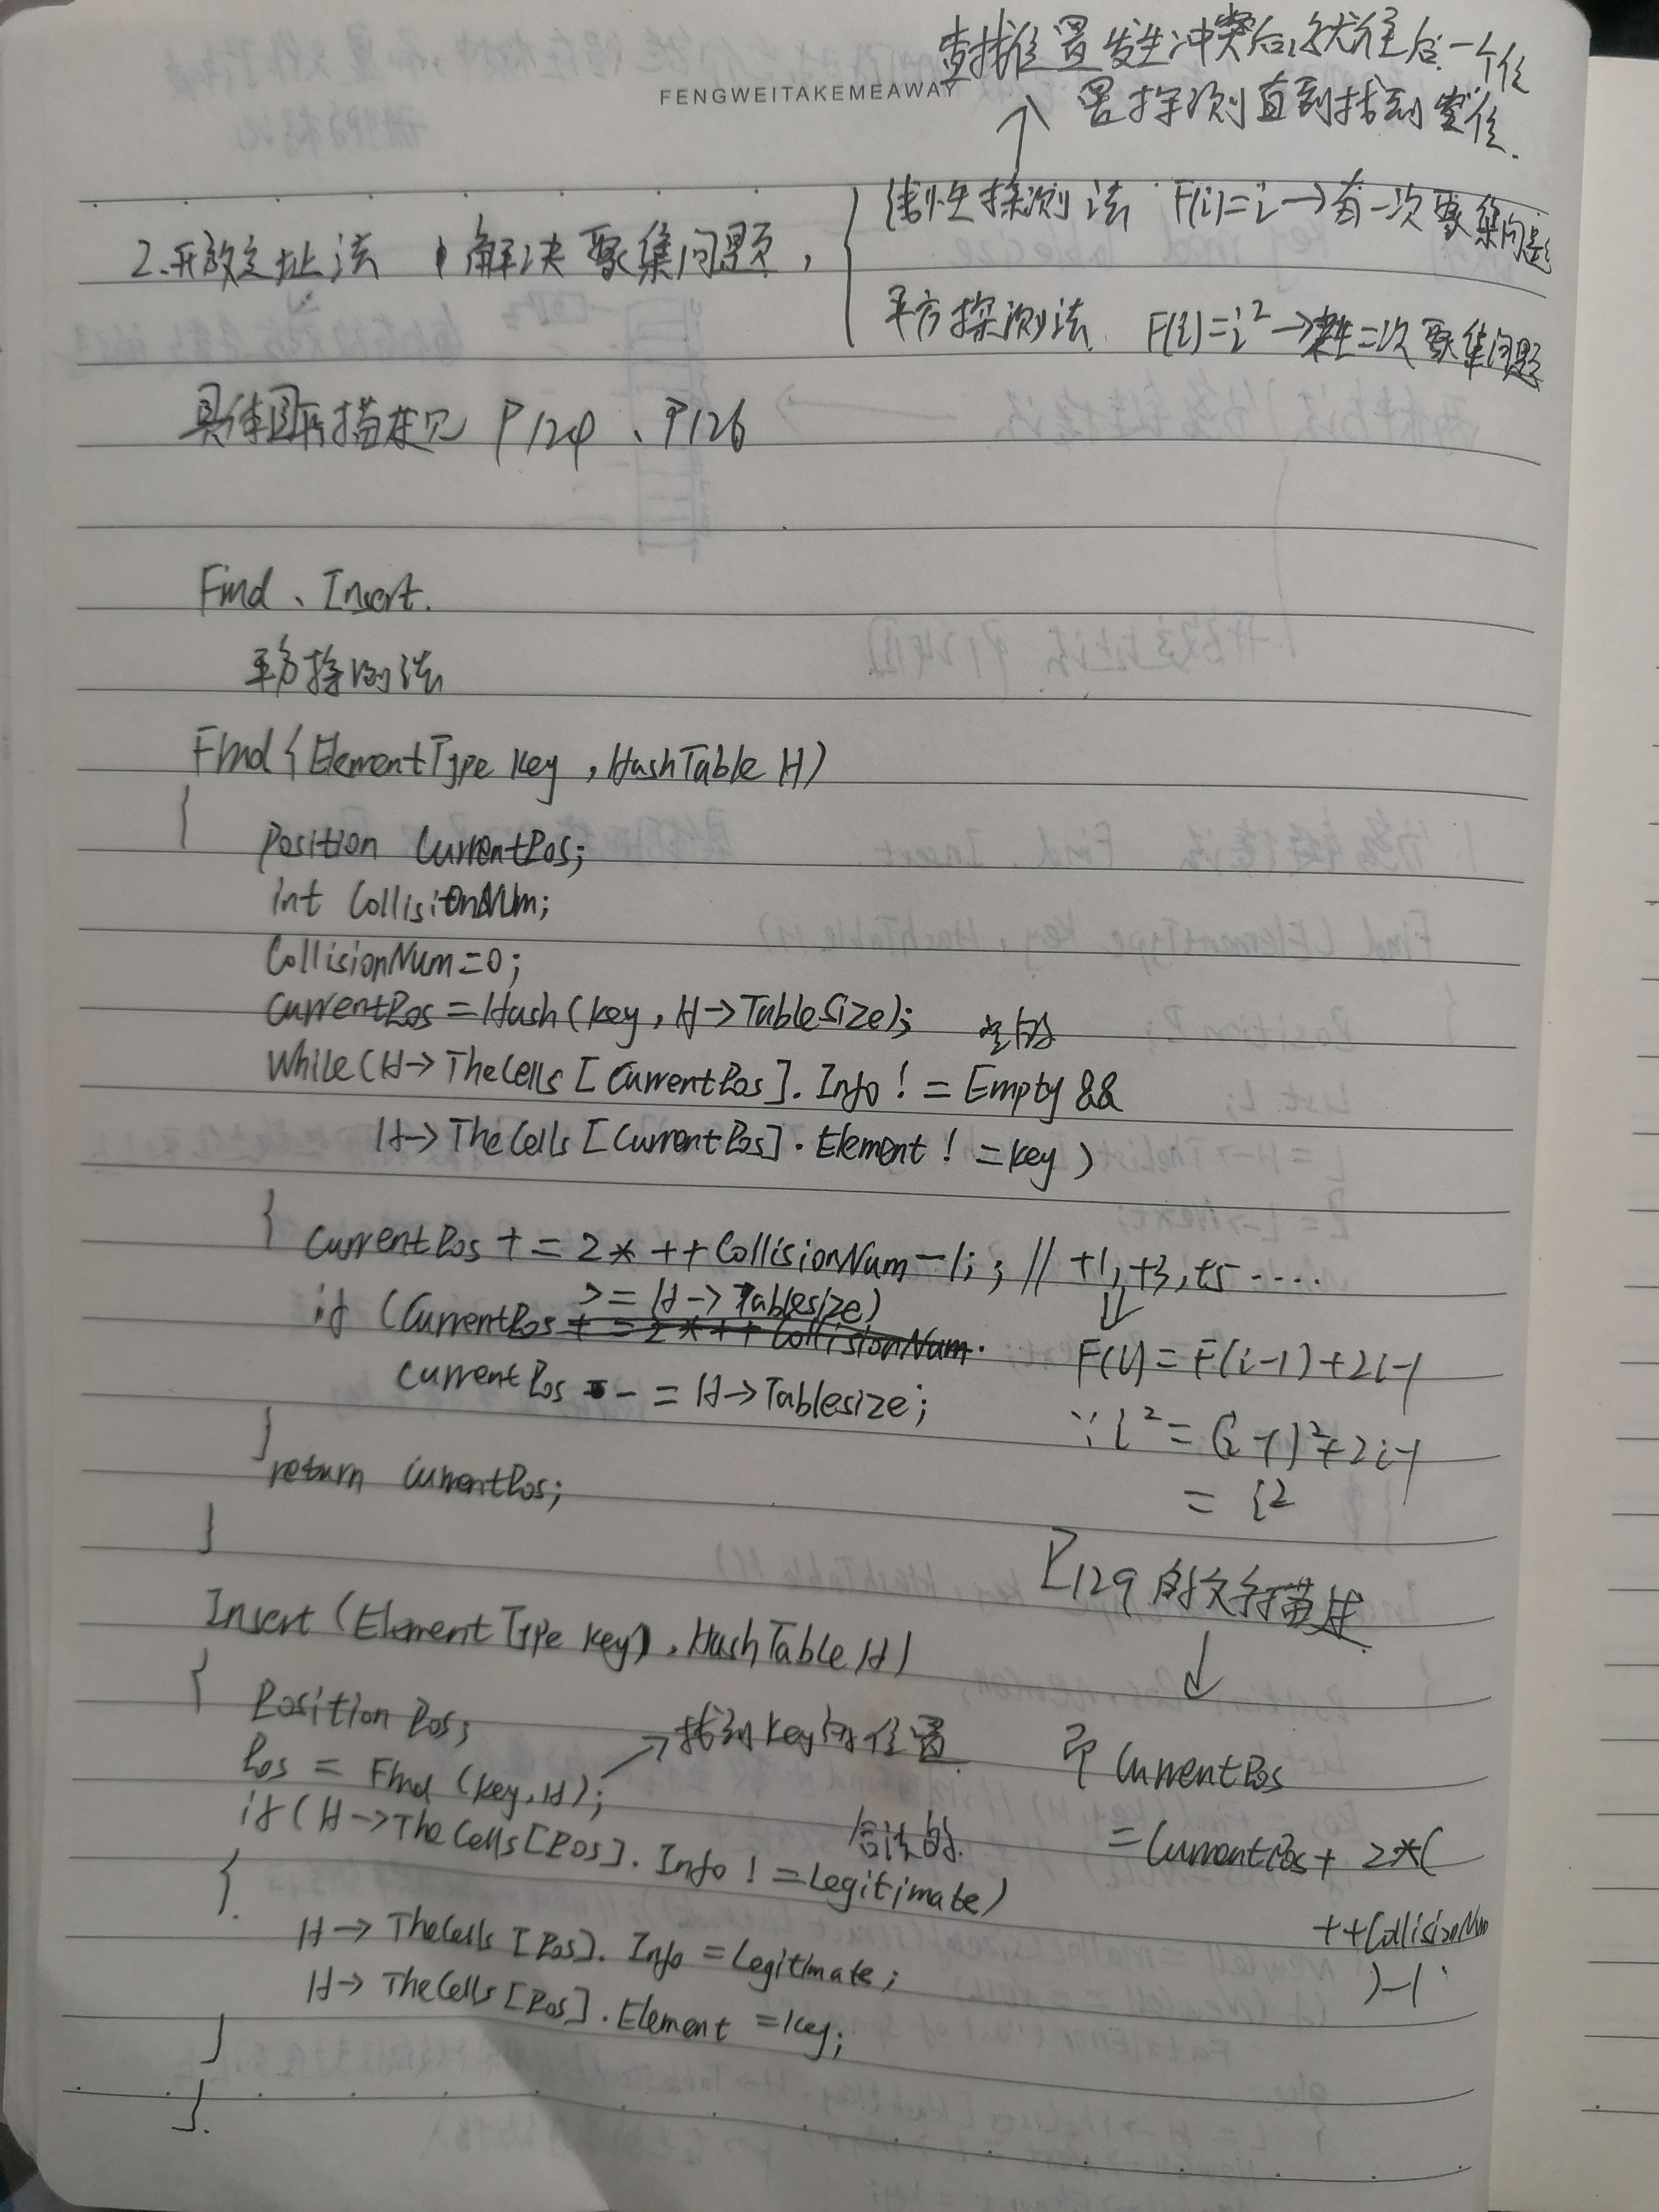 查找位置发生冲突后,就往后一个位
置探测直到找到空位.
FENGWEITAKEMEAWAY
2.开放定址法 解决聚集问题,
线性探测法 F(i)=i→有一次聚集问题
平方探测法 F(i)=i²→二次聚集问题
具体图示描述见 P124、P126
Find、Insert.
平方探测法
Find{ElementType key,HashTable H)
{
Position CurrentPos;
int CollisionNum;
CollisionNum=0;
CurrentPos=Hash(key,H->TableSize);
空的
While(H->TheCells[CurrentPos].Info!=Empty&&
H->TheCells[CurrentPos].Element!=key)
{ CurrentPos+=2*++CollisionNum-1;; //+1,+3,+5.....
if (CurrentPos >=H->Tablesize)
CurrentPos-=H->Tablesize;
}
return CurrentPos;
}
F(i)=F(i-1)+2i-1
∵i²=(i-1)²+2i-1
=i²
P129的文字描述
即CurrentPos
=CurrentPos+2*(
++CollisionNum
)-1
Insert(ElementType key),HashTable H)
{
Position Pos;
Pos=Find(key,H);→找到key的位置
if(H->TheCells[Pos].Info!=Legitimate)
合法的
{
H->TheCells[Pos].Info=Legitimate;
H->TheCells[Pos].Element=key;
}
}.